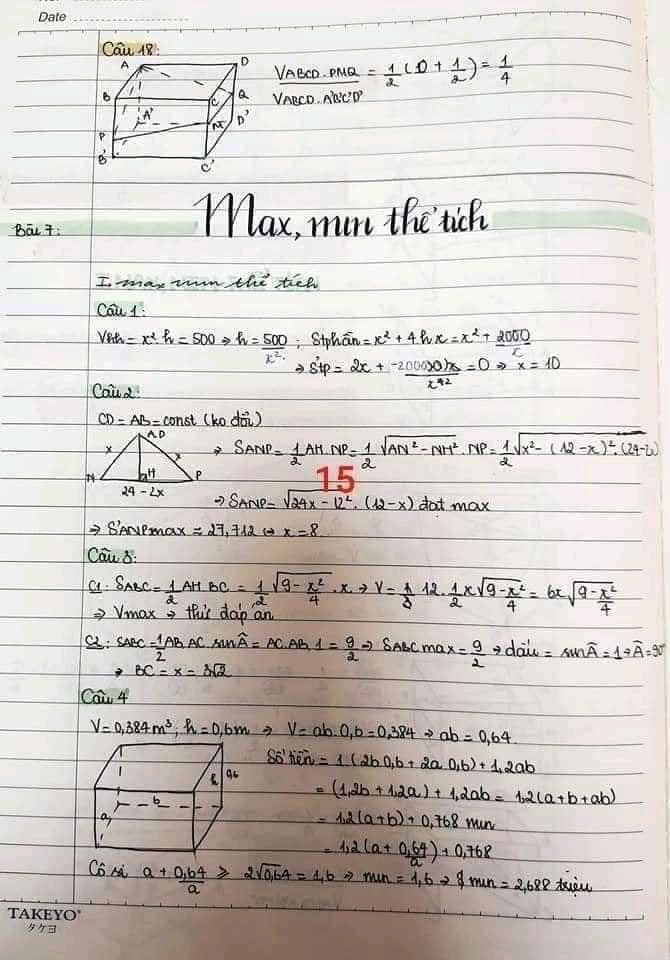 Date
Câu 18:
A D B C Q A' M D' P B' C'
VABCD.PMQ / VABCD.A'B'C'D' = 1/2 (0 + 1/2) = 1/4
Bài 7:
Max, min thể tích
I. max min thể tích
Câu 1:
= x². h = 500 → h = 500/x² ; Stphần = x² + 4hx = x² + 2000/x
= 0 → x = 10
Câu 2:
CD = AB = const (ko đổi)
A,D x x N H P 24 - 2x
→ SANP = 1/2 AH. NP = 1/2 √AN² - NH² . NP = 1/2 √x² - (12 - x)² .
15
→ SANP = √24x - 12² . (12 - x) đạt max
→ S'ANPmax = 27,712 ⇔ x = 8
Câu 3:
C1: SABC = 1/2 AH. BC = 1/2 √9 - x²/4 . x → V = 1/3 12. 1/2 x √9 - x²/4 = 6x √9 - x²/4
→ Vmax → thử đáp án
C2: SABC = 1/2 AB. AC. sinÂ = AC. AB. 1 = 9/2 → SABCmax = 9/2 → dấu = sinÂ = 1 → Â = 90°
→ BC = x = 3√2
Câu 4
V = 0,384m³; h = 0,6m → V = ab. 0,6 = 0,384 → ab = 0,64
a b h 0,6
Số tiền = 1(2b0,6 + 2a.0,6) + 1,2ab
= (1,2b + 1,2a) + 1,2ab = 1,2(a + b + ab)
= 1,2(a+b) + 0,768 min
= 1,2(a + 0,64/a) + 0,768
Cô si a + 0,64/a ≥ 2√0,64 = 1,6 → min = 1,6 → min = 2,688 triệu
TAKEYO®
タケヨ